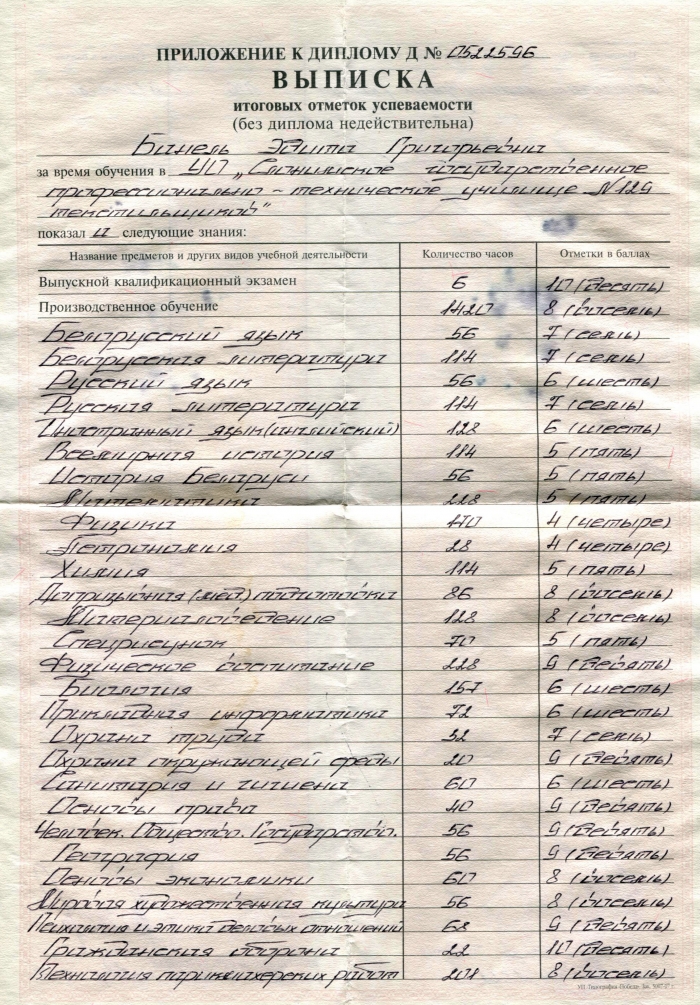 ПРИЛОЖЕНИЕ К ДИПЛОМУ Д № 0522596
ВЫПИСКА
итоговых отметок успеваемости
(без диплома недействительна)
Эдита Григорьевна
за время обучения в УО „Слонимское государственное
профессионально-техническое училище №129
текстильщиков"
показала следующие знания:
Название предметов и других видов учебной деятельности Количество часов Отметки в баллах
Выпускной квалификационный экзамен 6 10 (десять)
Производственное обучение 1420 8 (восемь)
Белорусский язык 56 7 (семь)
Белорусская литература 114 7 (семь)
Русский язык 56 6 (шесть)
Русская литература 114 7 (семь)
Иностранный язык (английский) 128 6 (шесть)
Всемирная история 114 5 (пять)
История Беларуси 56 5 (пять)
Математика 228 5 (пять)
Физика 170 4 (четыре)
Астрономия 28 4 (четыре)
Химия 114 5 (пять)
Допризывная (мед.) подготовка 86 8 (восемь)
Материаловедение 128 8 (восемь)
Спецрисунок 70 5 (пять)
Физическое воспитание 228 9 (девять)
Биология 157 6 (шесть)
Прикладная информатика 72 6 (шесть)
Охрана труда 32 7 (семь)
Охрана окружающей среды 20 9 (девять)
Санитария и гигиена 60 6 (шесть)
Основы права 40 9 (девять)
Человек. Общество. Государство. 56 9 (девять)
География 56 9 (девять)
Основы экономики 60 8 (восемь)
Мировая художественная культура 56 8 (восемь)
Психология и этика деловых отношений 68 9 (девять)
Гражданская оборона 22 10 (десять)
Технология парикмахерских работ 201 8 (восемь)